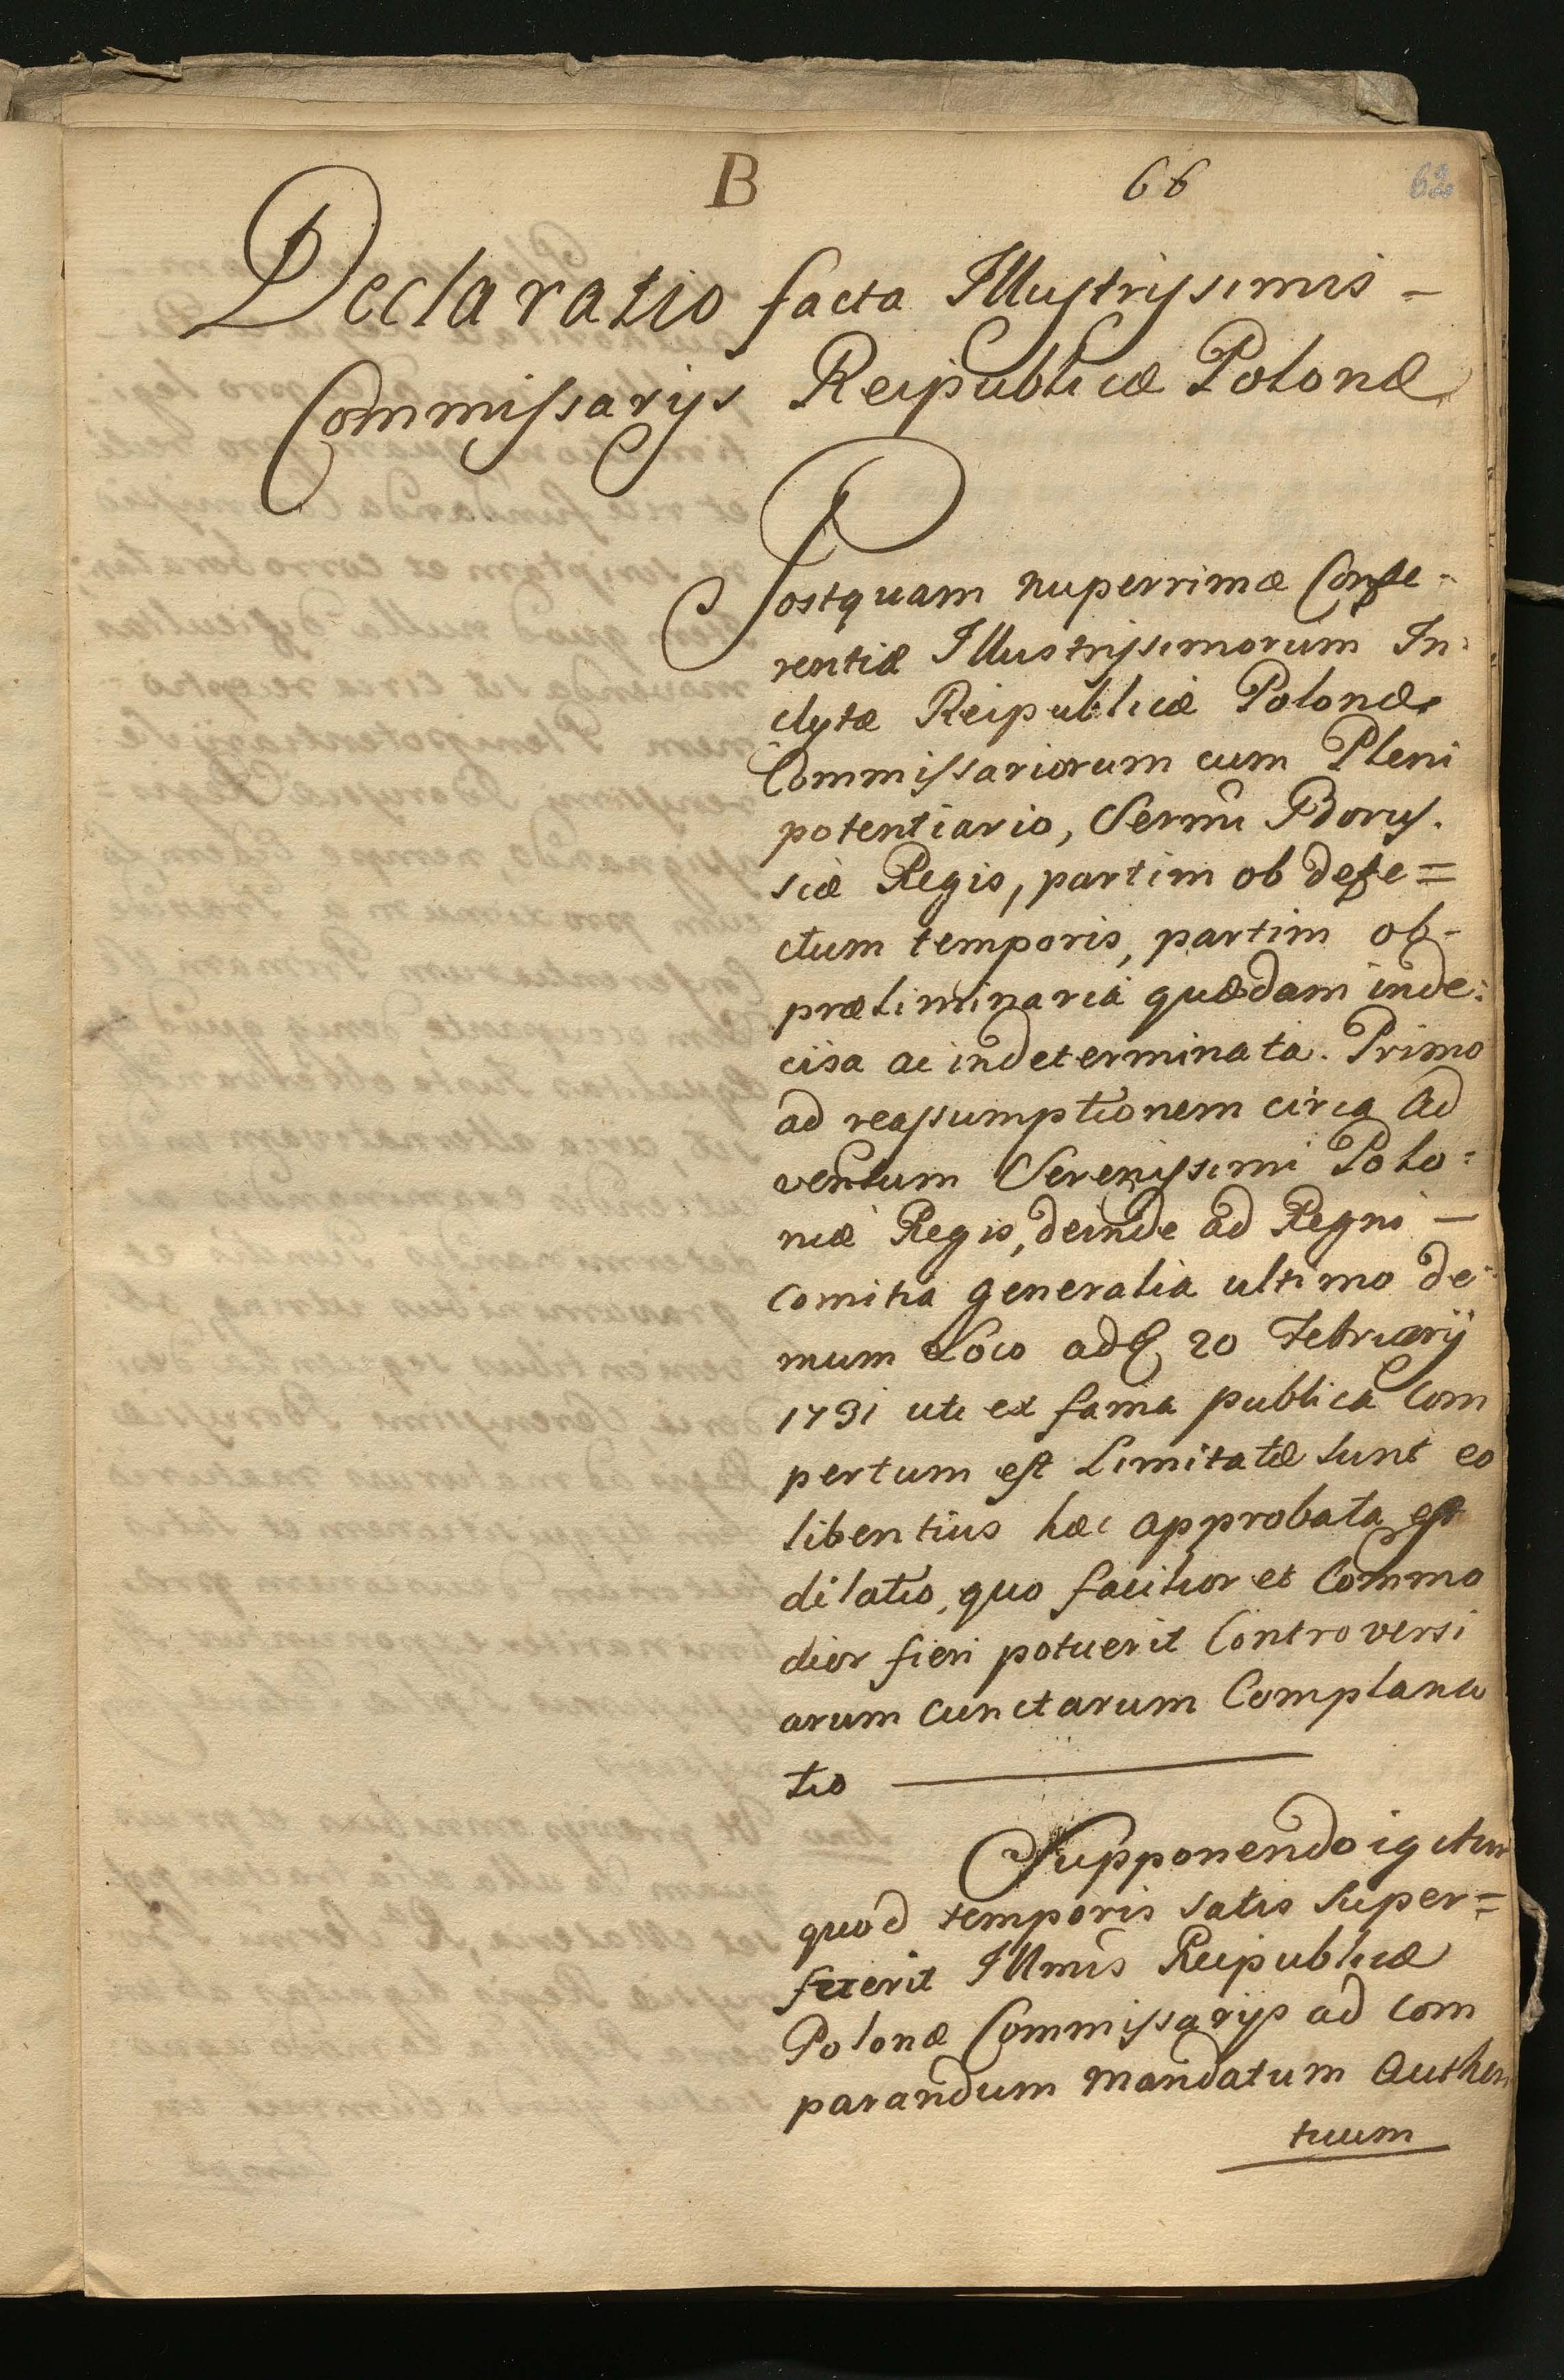 B 66 62
Declaratio facta Illustrissimis -
Commissarijs Reipublicæ Polonæ
Postquam nuperrimæ Confe-
rentiæ Illustrissimorum In:
clytæ Reipublicæ Polonæ
Commissariorum cum Pleni
potentiario, Sermi Borus.
siæ Regis, partim ob defe=
ctum temporis, partim ob-
præliminaria quædam inde:
cisa ac indeterminata. Primo
ad reassumptionem circa Ad
ventum Serenissimi Polo:
niæ Regis, deinde ad Regni -
Comitia generalia ultimo de
mum Loco ad 20 Februarij
1731 uti ex fama publica Com
pertum est Limitatæ sunt eo
libentius hæc approbata est
dilatio, quo facilior et Commo
dior fieri potuerit Controversi
arum cunctarum Complana
tio
Supponendo igitur
quod temporis satis super=
fuerit Illmis Reipublicæ
Polonæ Commissarijs ad com
parandum mandatum Authen
ticum